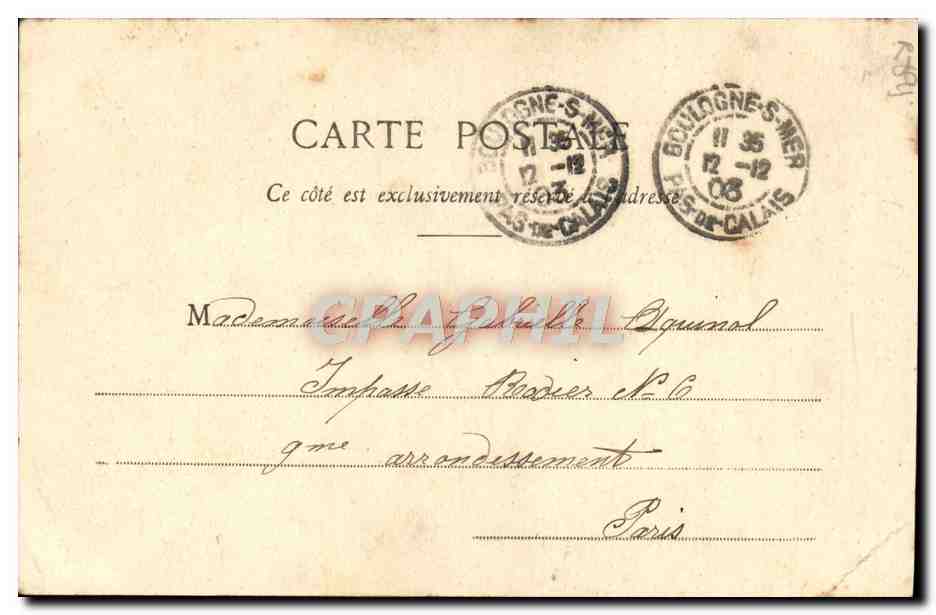 CARTE POSTALE
Ce côté est exclusivement réservé à l'adresse
BOULOGNE-S-MER
11 35
12 -12
03
PAS-DE-CALAIS
BOULOGNE-S-MER
11 35
12 -12
03
PAS-DE-CALAIS
CPAPHIL
Mademoiselle Gabrielle
Impasse Rodier No 6
9me arrondissement
Paris